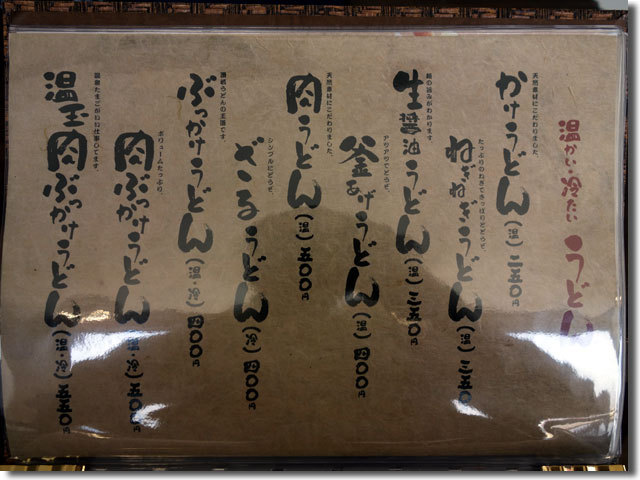 温かい・冷たい うどん
天然素材にこだわりました。
かけうどん(温)二五〇円
たっぷりのねぎでさっぱりどうぞ。
ねぎねぎうどん(温)三五〇
麺の旨みがわかります
生醤油うどん(温)三五〇円
アツアツでどうぞ。
釜あげうどん(温)四〇〇円
天然素材にこだわりました。
肉うどん(温)五〇〇円
シンプルにどうぞ。
ざるうどん(冷)四〇〇円
讃岐うどんの王道です。
ぶっかけうどん(温・冷)四〇〇円
ボリュームたっぷり。
肉ぶっかけうどん(温・冷)五〇〇円
温泉たまごがいい仕事してます。
温玉肉ぶっかけうどん(温・冷)五五〇円